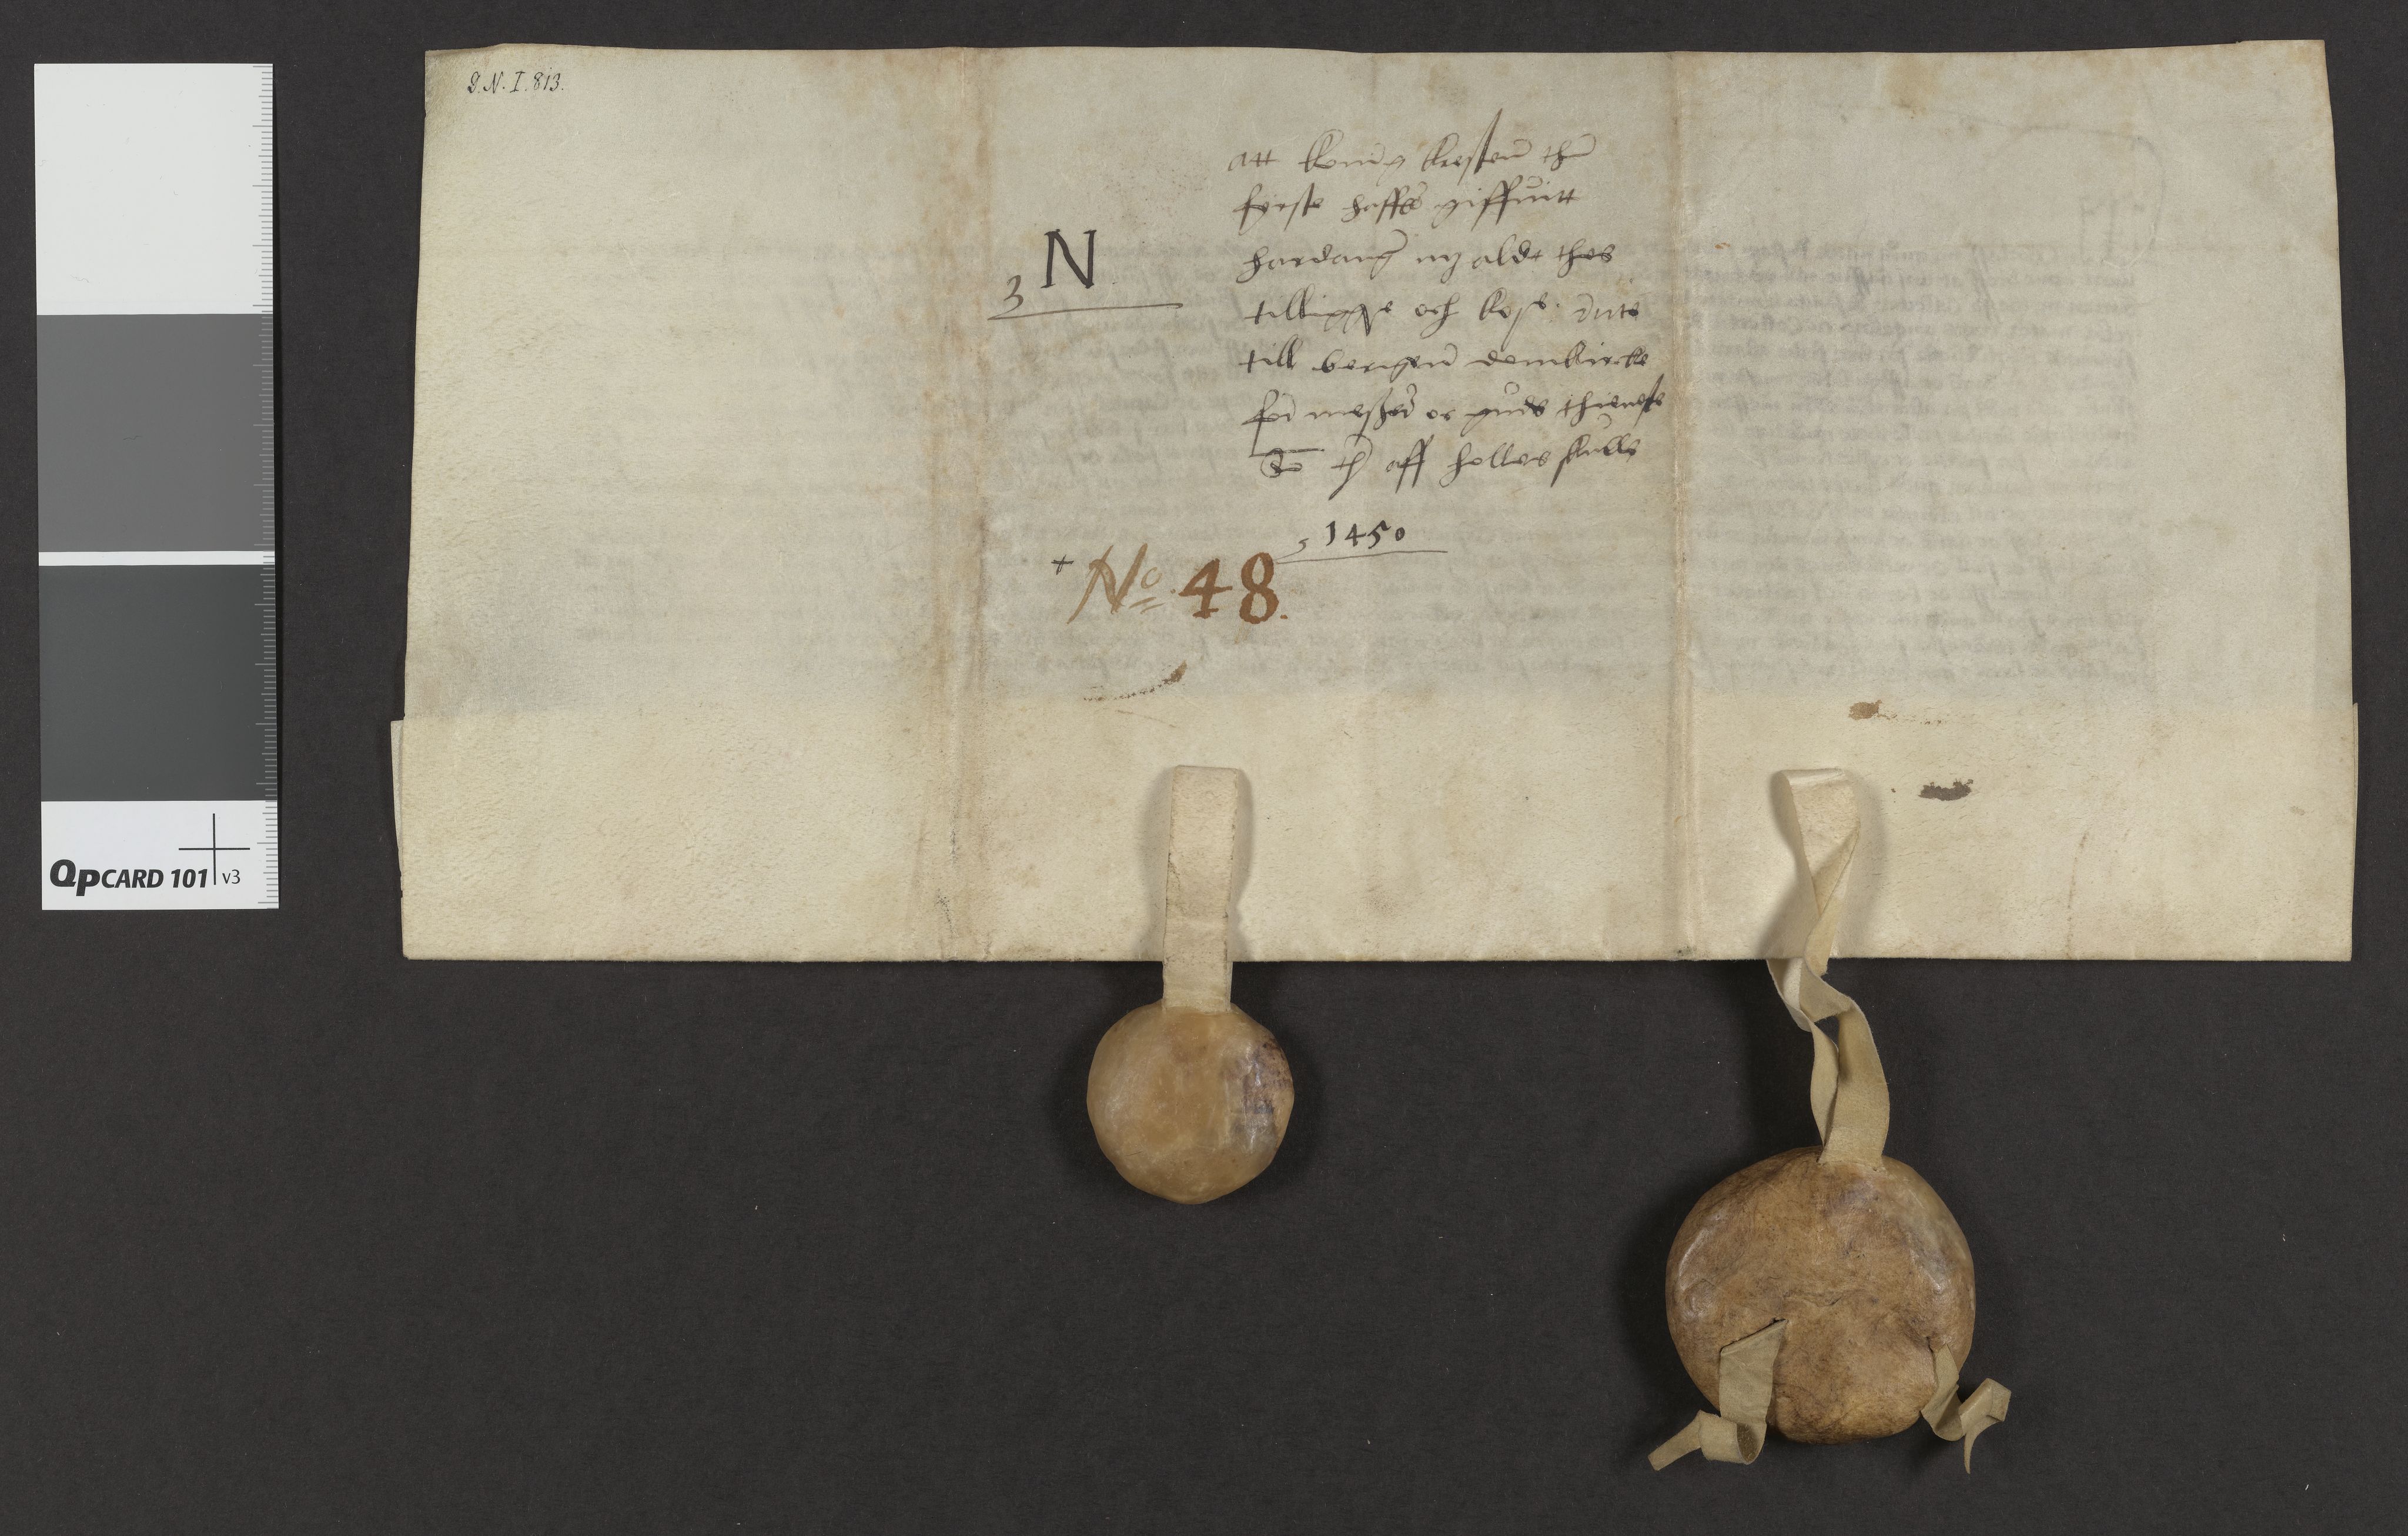 D.N.I.813.
att konnīg kerstenn thn̄
første haffr̄ giffuitt
hardang m3 aldt thes
tilligge och
till bergenn domkircke
for messer oc guds thieneste
th aff holles skulle
N
3
1450
+ No. 48.
QpCARD 101 v3